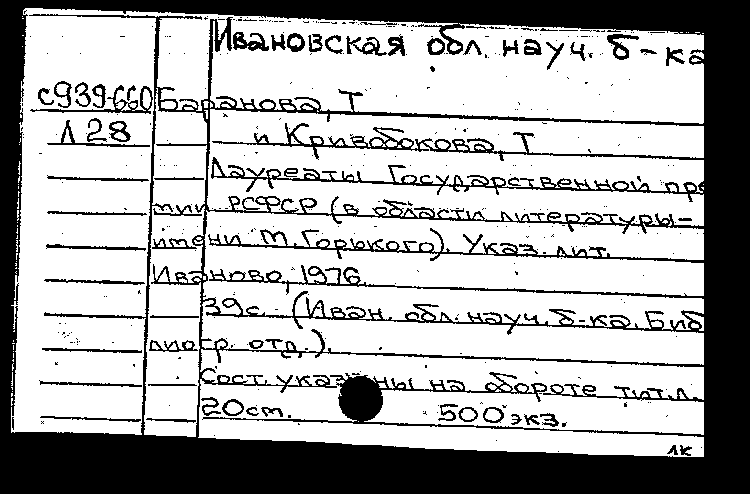 Ивановская обл. науч. б-ка
с939-660 Баранова, Т
Л 28 и Кривобокова, Т
Лауреаты Государственной пре
мии РСФСР (в области литературы-
имени М. Горького). Указ. лит.
Иваново, 1976.
39с. (Иван. обл. науч. б-ка. Биб
лиогр. отд.).
Сост. указаны на обороте тит.л.
20см. 500 экз.
лк